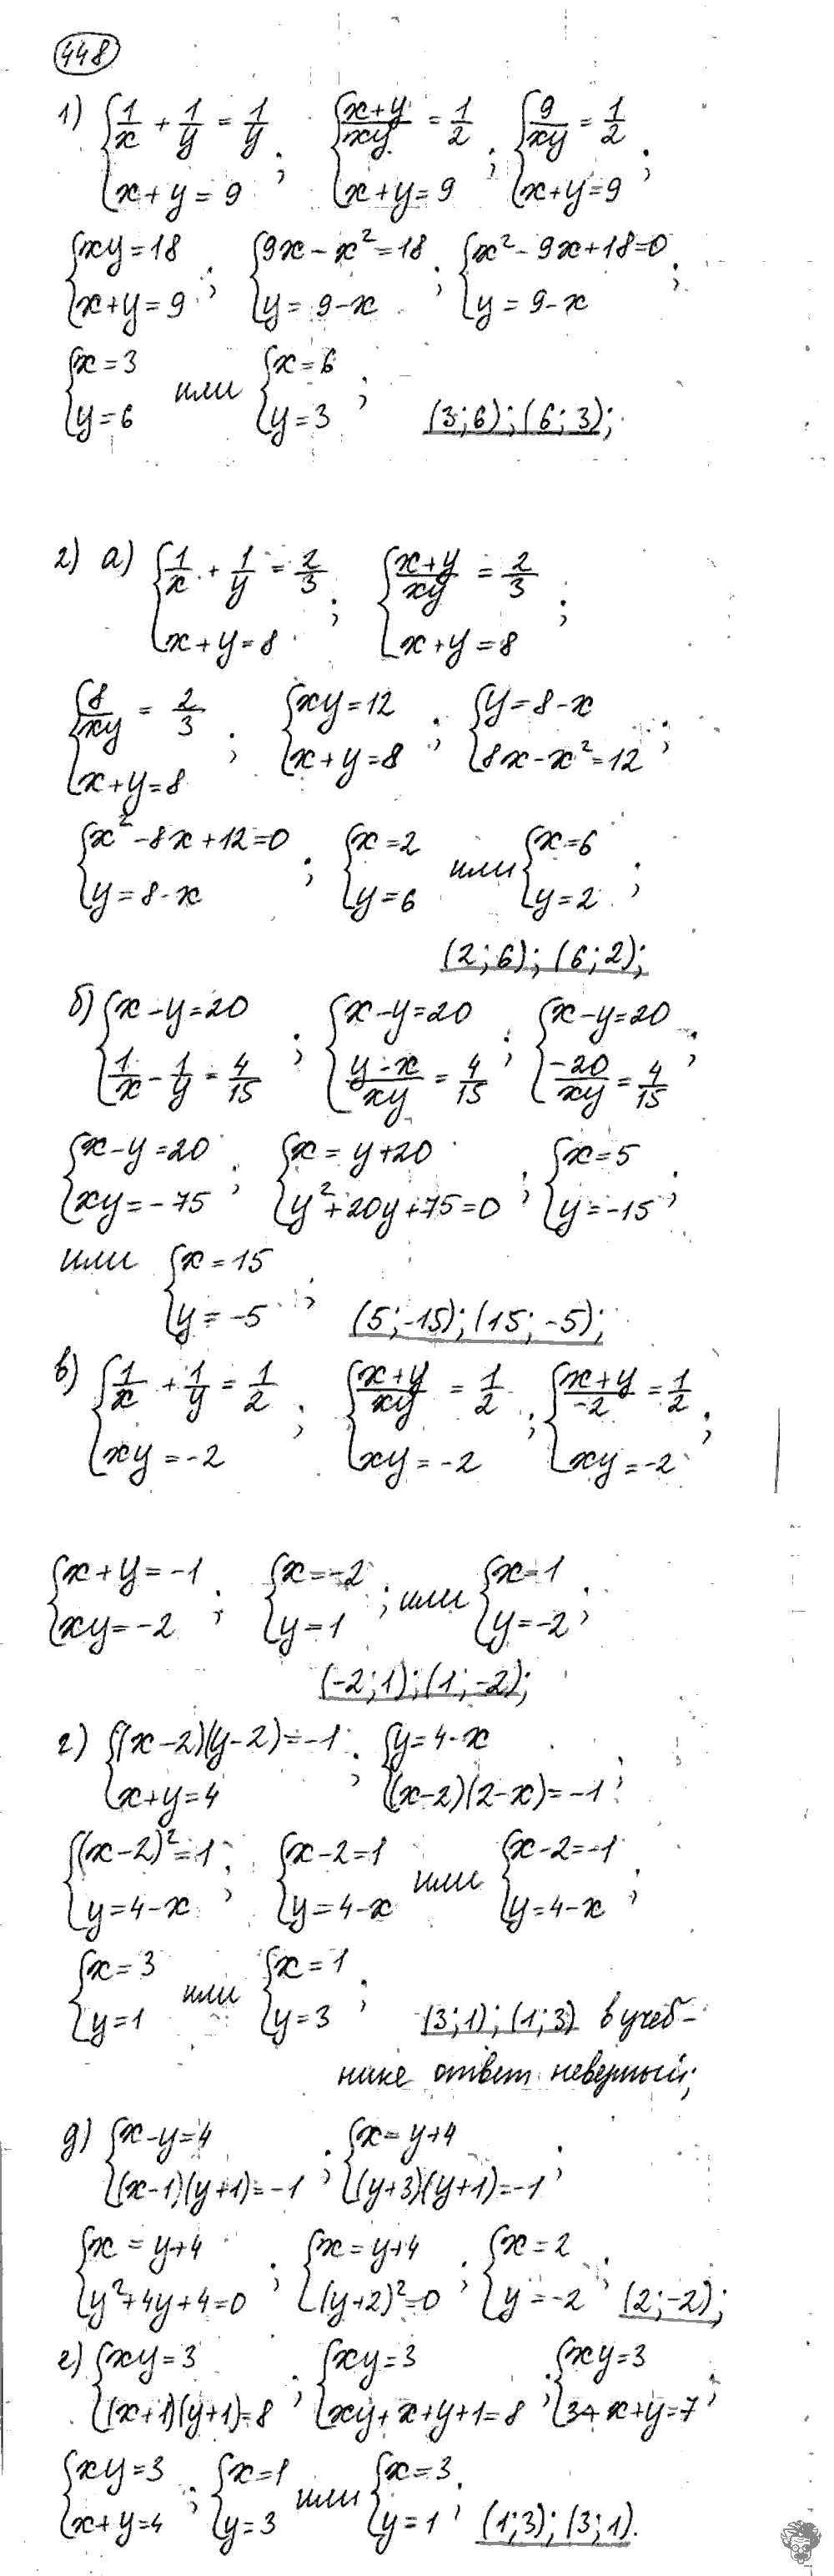 448
1) {1/x + 1/y = 1/y; x+y=9; {(x+y)/xy = 1/2; x+y=9; {9/xy = 1/2; x+y=9;
{xy=18; x+y=9; {9x-x²=18; y=9-x; {x²-9x+18=0; y=9-x;
{x=3; y=6 или {x=6; y=3; (3;6);(6;3);
2) а) {1/x + 1/y = 2/3; x+y=8; {(x+y)/xy = 2/3; x+y=8;
{8/xy = 2/3; x+y=8; {xy=12; x+y=8; {y=8-x; 8x-x²=12;
{x²-8x+12=0; y=8-x; {x=2; y=6 или {x=6; y=2;
(2;6);(6;2);
б) {x-y=20; 1/x - 1/y = 4/15; {x-y=20; (y-x)/xy = 4/15; {x-y=20; -20/xy = 4/15;
{x-y=20; xy=-75; {x=y+20; y²+20y+75=0; {x=5; y=-15;
или {x=15; y=-5; (5;-15);(15;-5);
в) {1/x + 1/y = 1/2; xy=-2; {(x+y)/xy = 1/2; xy=-2; {(x+y)/-2 = 1/2; xy=-2;
{x+y=-1; xy=-2; {x=-2; y=1; или {x=1; y=-2;
(-2;1);(1;-2);
г) {(x-2)(y-2)=-1; x+y=4; {y=4-x; (x-2)(2-x)=-1;
{(x-2)²=1; y=4-x; {x-2=1; y=4-x или {x-2=-1; y=4-x;
{x=3; y=1 или {x=1; y=3; (3;1);(1;3) в учеб-
нике ответ неверный;
д) {x-y=4; (x-1)(y+1)=-1; {x=y+4; (y+3)(y+1)=-1;
{x=y+4; y²+4y+4=0; {x=y+4; (y+2)²=0; {x=2; y=-2; (2;-2);
е) {xy=3; (x+1)(y+1)=8; {xy=3; xy+x+y+1=8; {xy=3; 3+x+y=7;
{xy=3; x+y=4; {x=1; y=3 или {x=3; y=1; (1;3);(3;1).